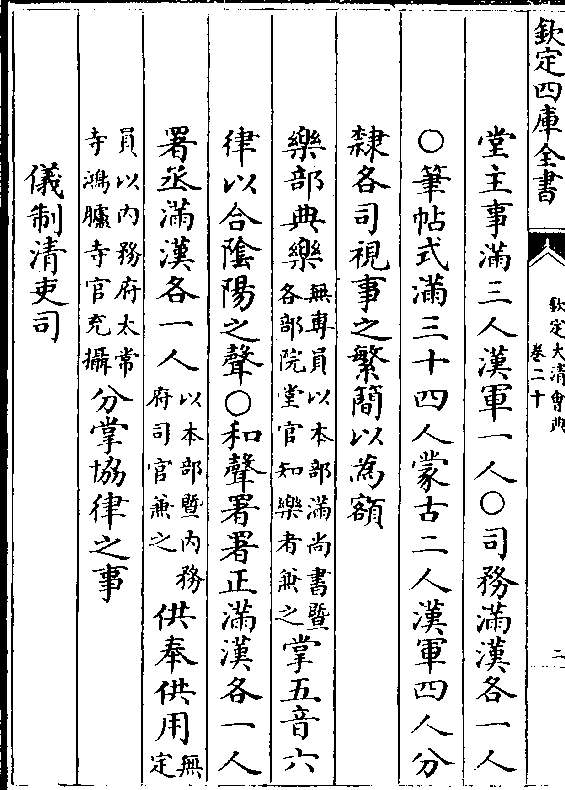 欽定四庫全書
欽定大清會典
卷二十
二
堂主事滿三人漢軍一人〇司務滿漢各一人
〇筆帖式滿三十四人蒙古二人漢軍四人分
隸各司視事之繁簡以為額
樂部典樂無專員以本部滿尚書暨各部院堂官知樂者兼之掌五音六
律以合陰陽之聲〇和聲署署正滿漢各一人
署丞滿漢各一人以本部暨內務府司官兼之供奉供用無定
員以内務府太常寺鴻臚寺官充攝分掌協律之事
儀制清吏司